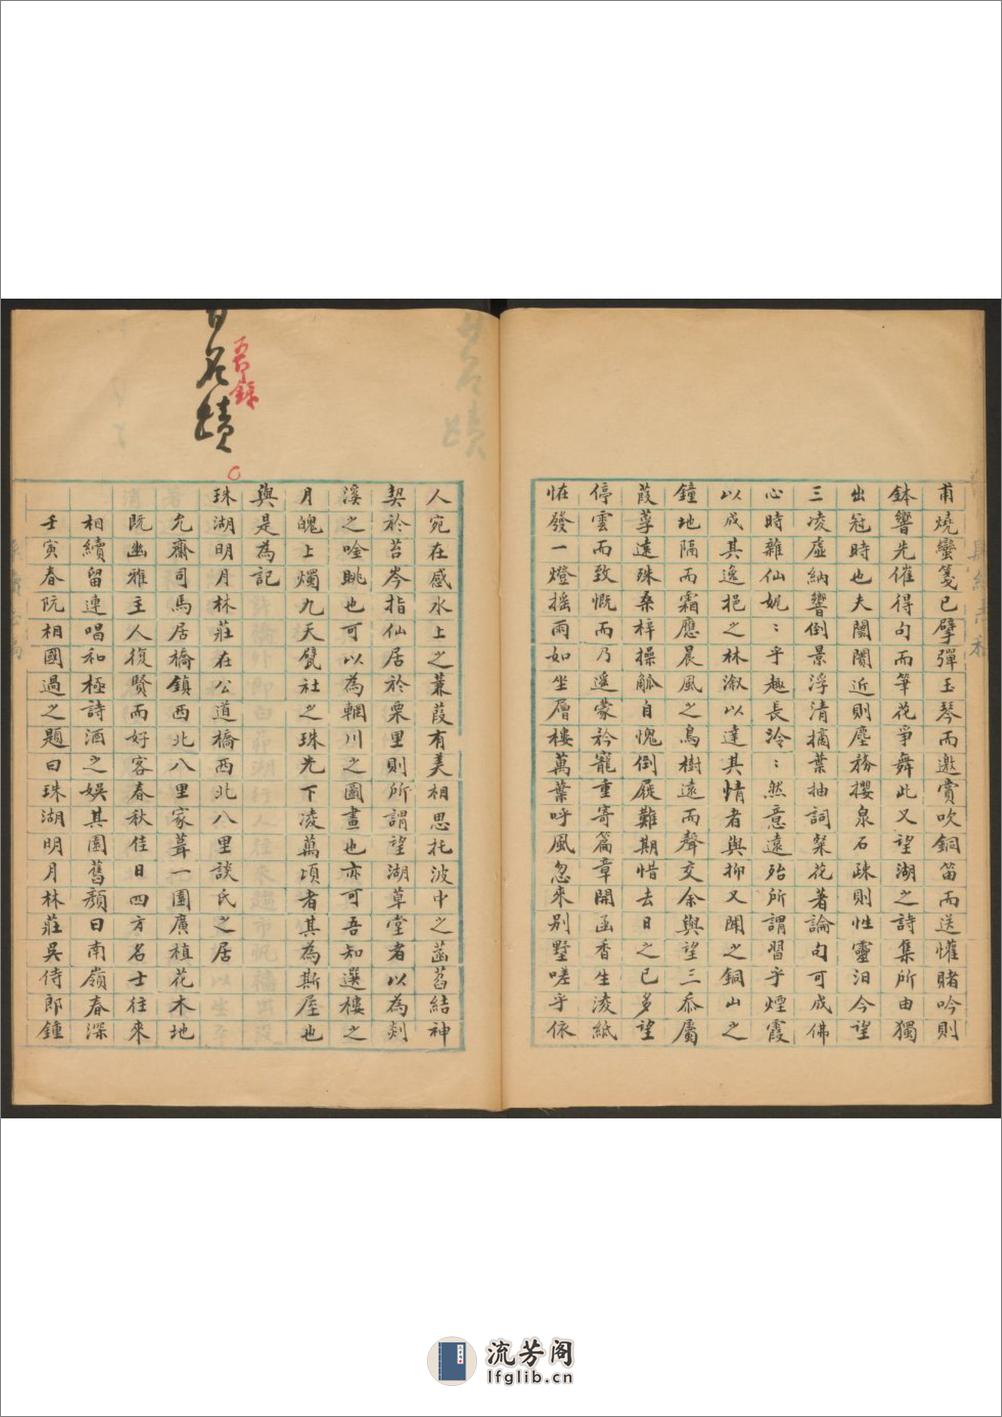 甫燒蠻箋已擘彈玉琴而邀賞吹銅笛而送懽賭吟則
鉢響先催得句而筆花爭舞此又望湖之詩集所由獨
出冠時也夫闤闠近則塵務攖泉石疎則性靈汨今望
三凌虛納響倒景浮清摘葉抽詞粲花著論句可成佛
心時雜仙娓〻乎趣長泠〻然意遠殆所謂習乎煙霞
以成其逸挹之林漵以達其情者與抑又聞之銅山之
鐘地隔而霜應晨風之鳥樹遠而聲交余與望三忝屬
葭莩遠殊桑梓操觚自愧倒屣難期惜去日之已多望
停雲而致慨而乃遥蒙衿寵重寄篇章開函香生淩紙
怪發一燈搖雨如坐層樓萬葉呼風忽來别墅嗟乎依
人宛在感水上之蒹葭有美相思托波中之菡萏結神
契於苔岑指仙居於栗里則所謂望湖草堂者以為剡
溪之唫眺也可以為輞川之圖畫也亦可吾知選樓之
月魄上燭九天甓社之珠光下凌萬頃者其為斯屋也
與是為記
珠湖明月林莊在公道橋西北八里談氏之居
允齋司馬居橋鎮西北八里家葺一園廣植花木地
既幽雅主人復賢而好客春秋佳日四方名士往來
相續留連唱和極詩酒之娛其園舊顏曰南嶺春深
壬寅春阮相國過之題曰珠湖明月林莊吳侍郎鍾
名蹟
流芳阁
lfglib.cn